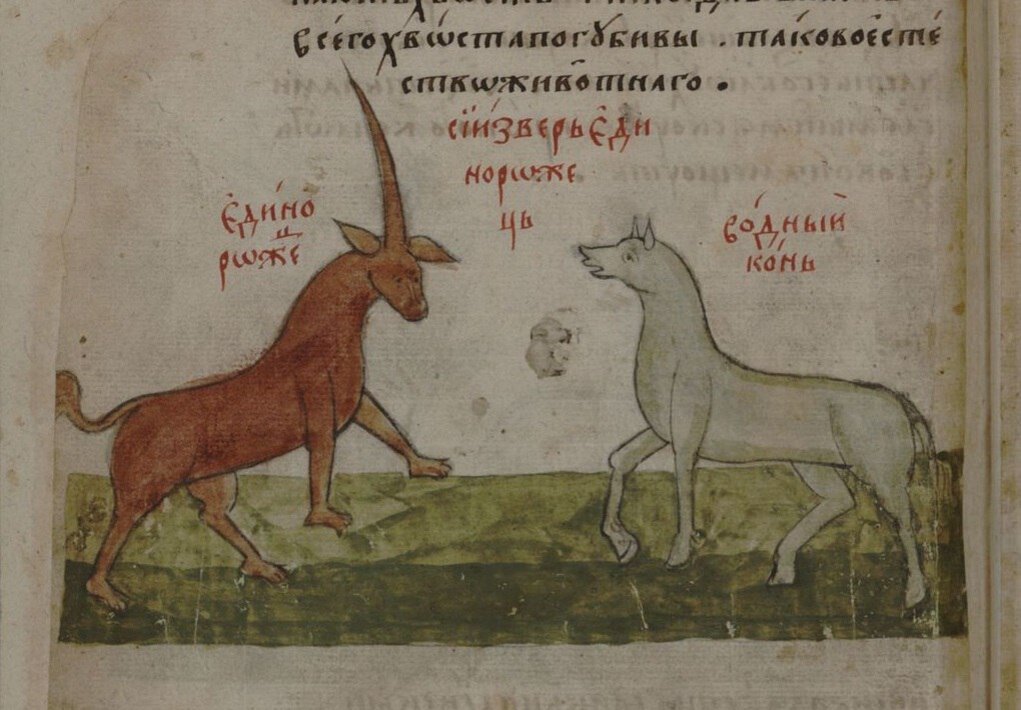 всегохвѡстапогꙋбивы . таковоесте
ствѡживотнаго .
сїизверьєди
норѡже
ць
єдино
рѡжець
водныи
конь